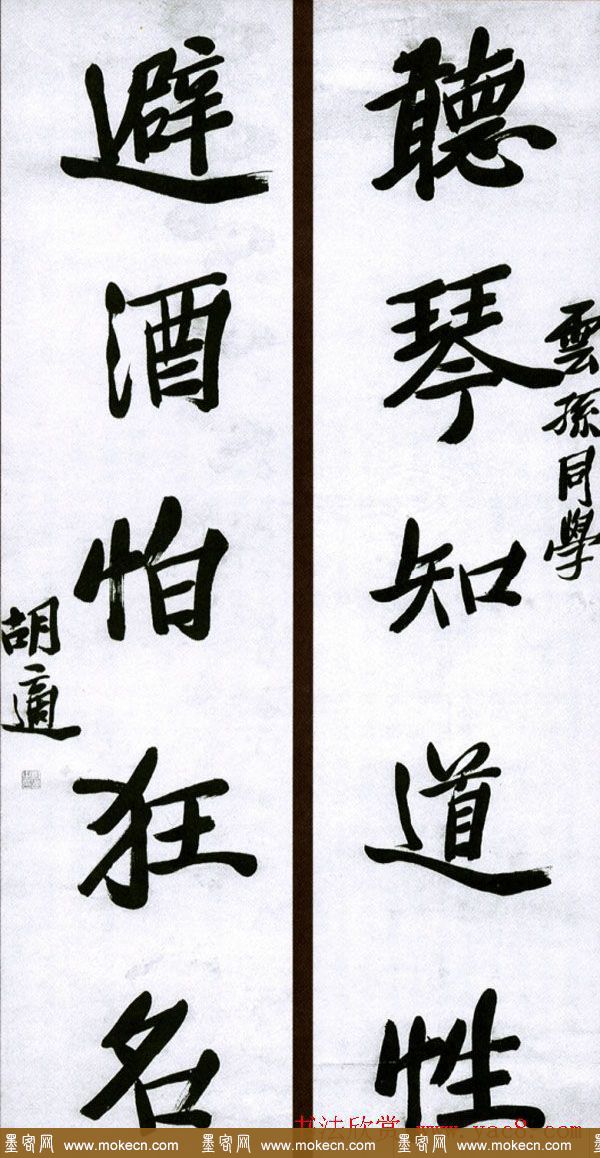 雲孫同學
聽琴知道性
避酒怕狂名
胡適
书法欣赏 www.yac8.com
墨客网 www.mokecn.com 墨客网 www.mokecn.com 墨客网 www.mokecn.com